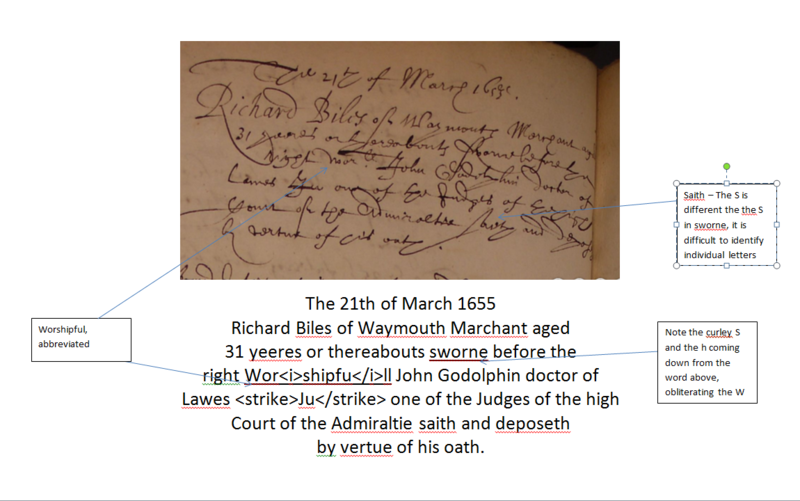 The 21th of March 1655.
Richard Biles of Waymouth Marchant aged
31 yeeres or thereabouts sworne before the
right Wor:ll John Godolphin doctor of
Lawes Ju one of the Judges of the high
Court of the Admiraltie saith and deposeth
by vertue of his oath.
Saith – The S is
different the the S
in sworne, it is
difficult to identify
individual letters
Worshipful,
abbreviated
The 21th of March 1655
Richard Biles of Waymouth Marchant aged
31 yeeres or thereabouts sworne before the
right Wor<i>shipfu</i>ll John Godolphin doctor of
Lawes <strike>Ju</strike> one of the Judges of the high
Court of the Admiraltie saith and deposeth
by vertue of his oath.
Note the curley S
and the h coming
down from the
word above,
obliterating the W